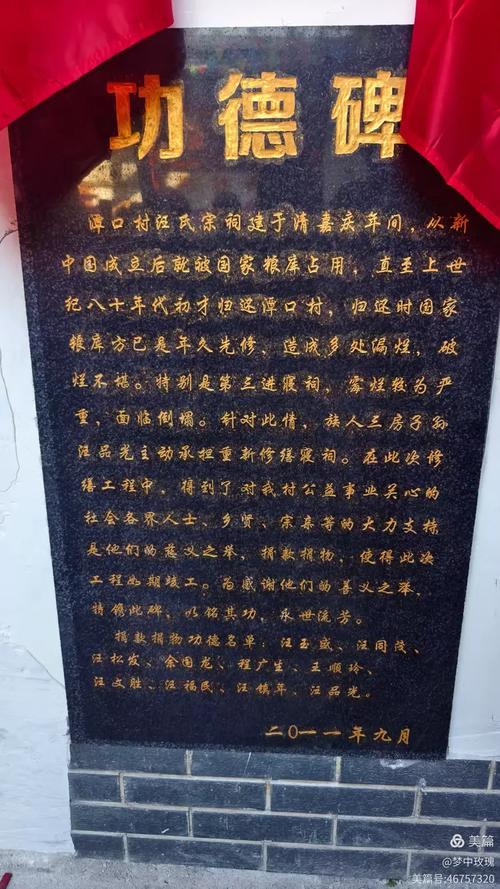 功德碑
潭口村汪氏宗祠建于清嘉庆年间，从新
中国成立后就被国家粮库占用，直至上世
纪八十年代初才归还潭口村，归还时国家
粮库方已是年久失修、造成多处漏烂，破
烂不堪。特别是第三进寝祠，霉烂较为严
重，面临倒塌。针对此情，族人三房子孙
汪品光主动承担重新修缮寝祠。在此次修
缮工程中，得到了对我村公益事业关心的
社会各界人士、乡贤、宗亲等的大力支持
是他们的慈义之举，捐款捐物，使得此次
工程如期竣工。为感谢他们的善义之举，
特镌此碑，以铭其功，永世流芳。
捐款捐物功德名单：汪玉盛、汪同茂、
汪松发、余国龙、程广生、王顺玲、
汪文胜、汪福民、汪镇年、汪品光。
二〇一一年九月
美篇
@梦中玫瑰
美篇号:46757320